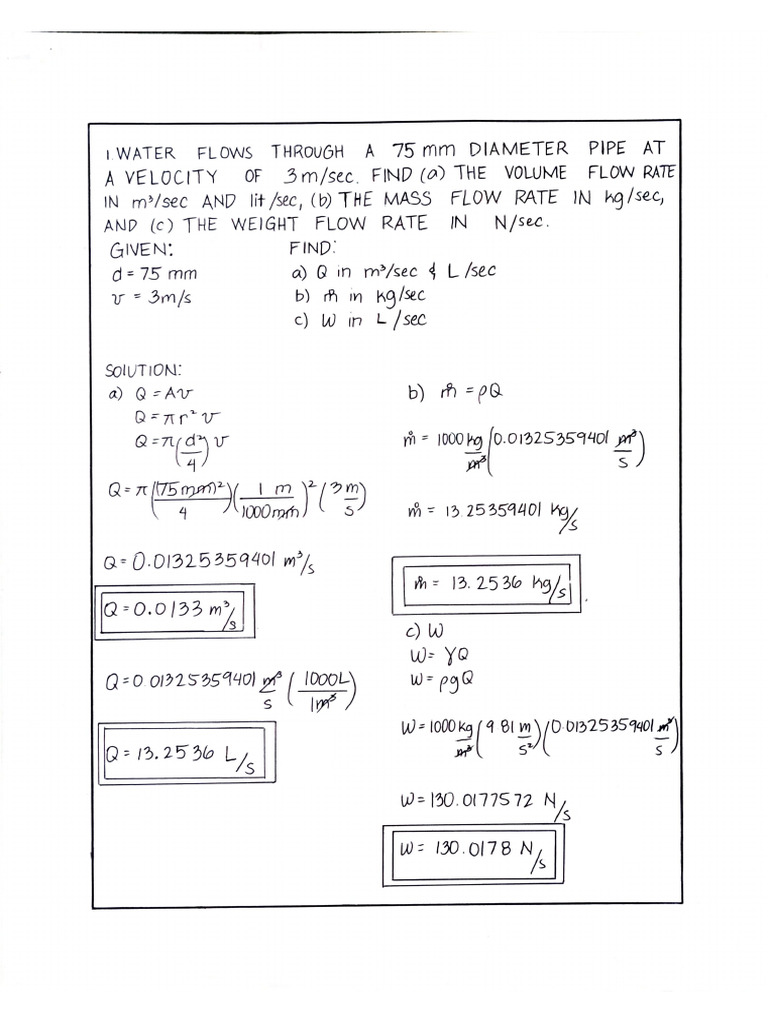 1. WATER FLOWS THROUGH A 75 mm DIAMETER PIPE AT
A VELOCITY OF 3m/sec. FIND (a) THE VOLUME FLOW RATE
IN m³/sec AND lit/sec, (b) THE MASS FLOW RATE IN kg/sec,
AND (c) THE WEIGHT FLOW RATE IN N/sec.
GIVEN:
d = 75 mm
v = 3m/s
FIND:
a) Q in m³/sec & L/sec
b) ṁ in kg/sec
c) W in L/sec
SOLUTION:
a) Q = Av
Q = πr²v
Q = π(d²/4)v
Q = π((75mm)²/4)(1 m/1000mm)²(3m/s)
Q = 0.01325359401 m³/s
Q = 0.0133 m³/s
Q = 0.01325359401 m³/s (1000L/1m³)
Q = 13.2536 L/s
b) ṁ = ρQ
ṁ = 1000 kg/m³ (0.01325359401 m³/s)
ṁ = 13.25359401 kg/s
ṁ = 13.2536 kg/s
c) W
W = γQ
W = ρgQ
W = 1000 kg/m³ (9.81 m/s²)(0.01325359401 m³/s)
W = 130.0177572 N/s
W = 130.0178 N/s